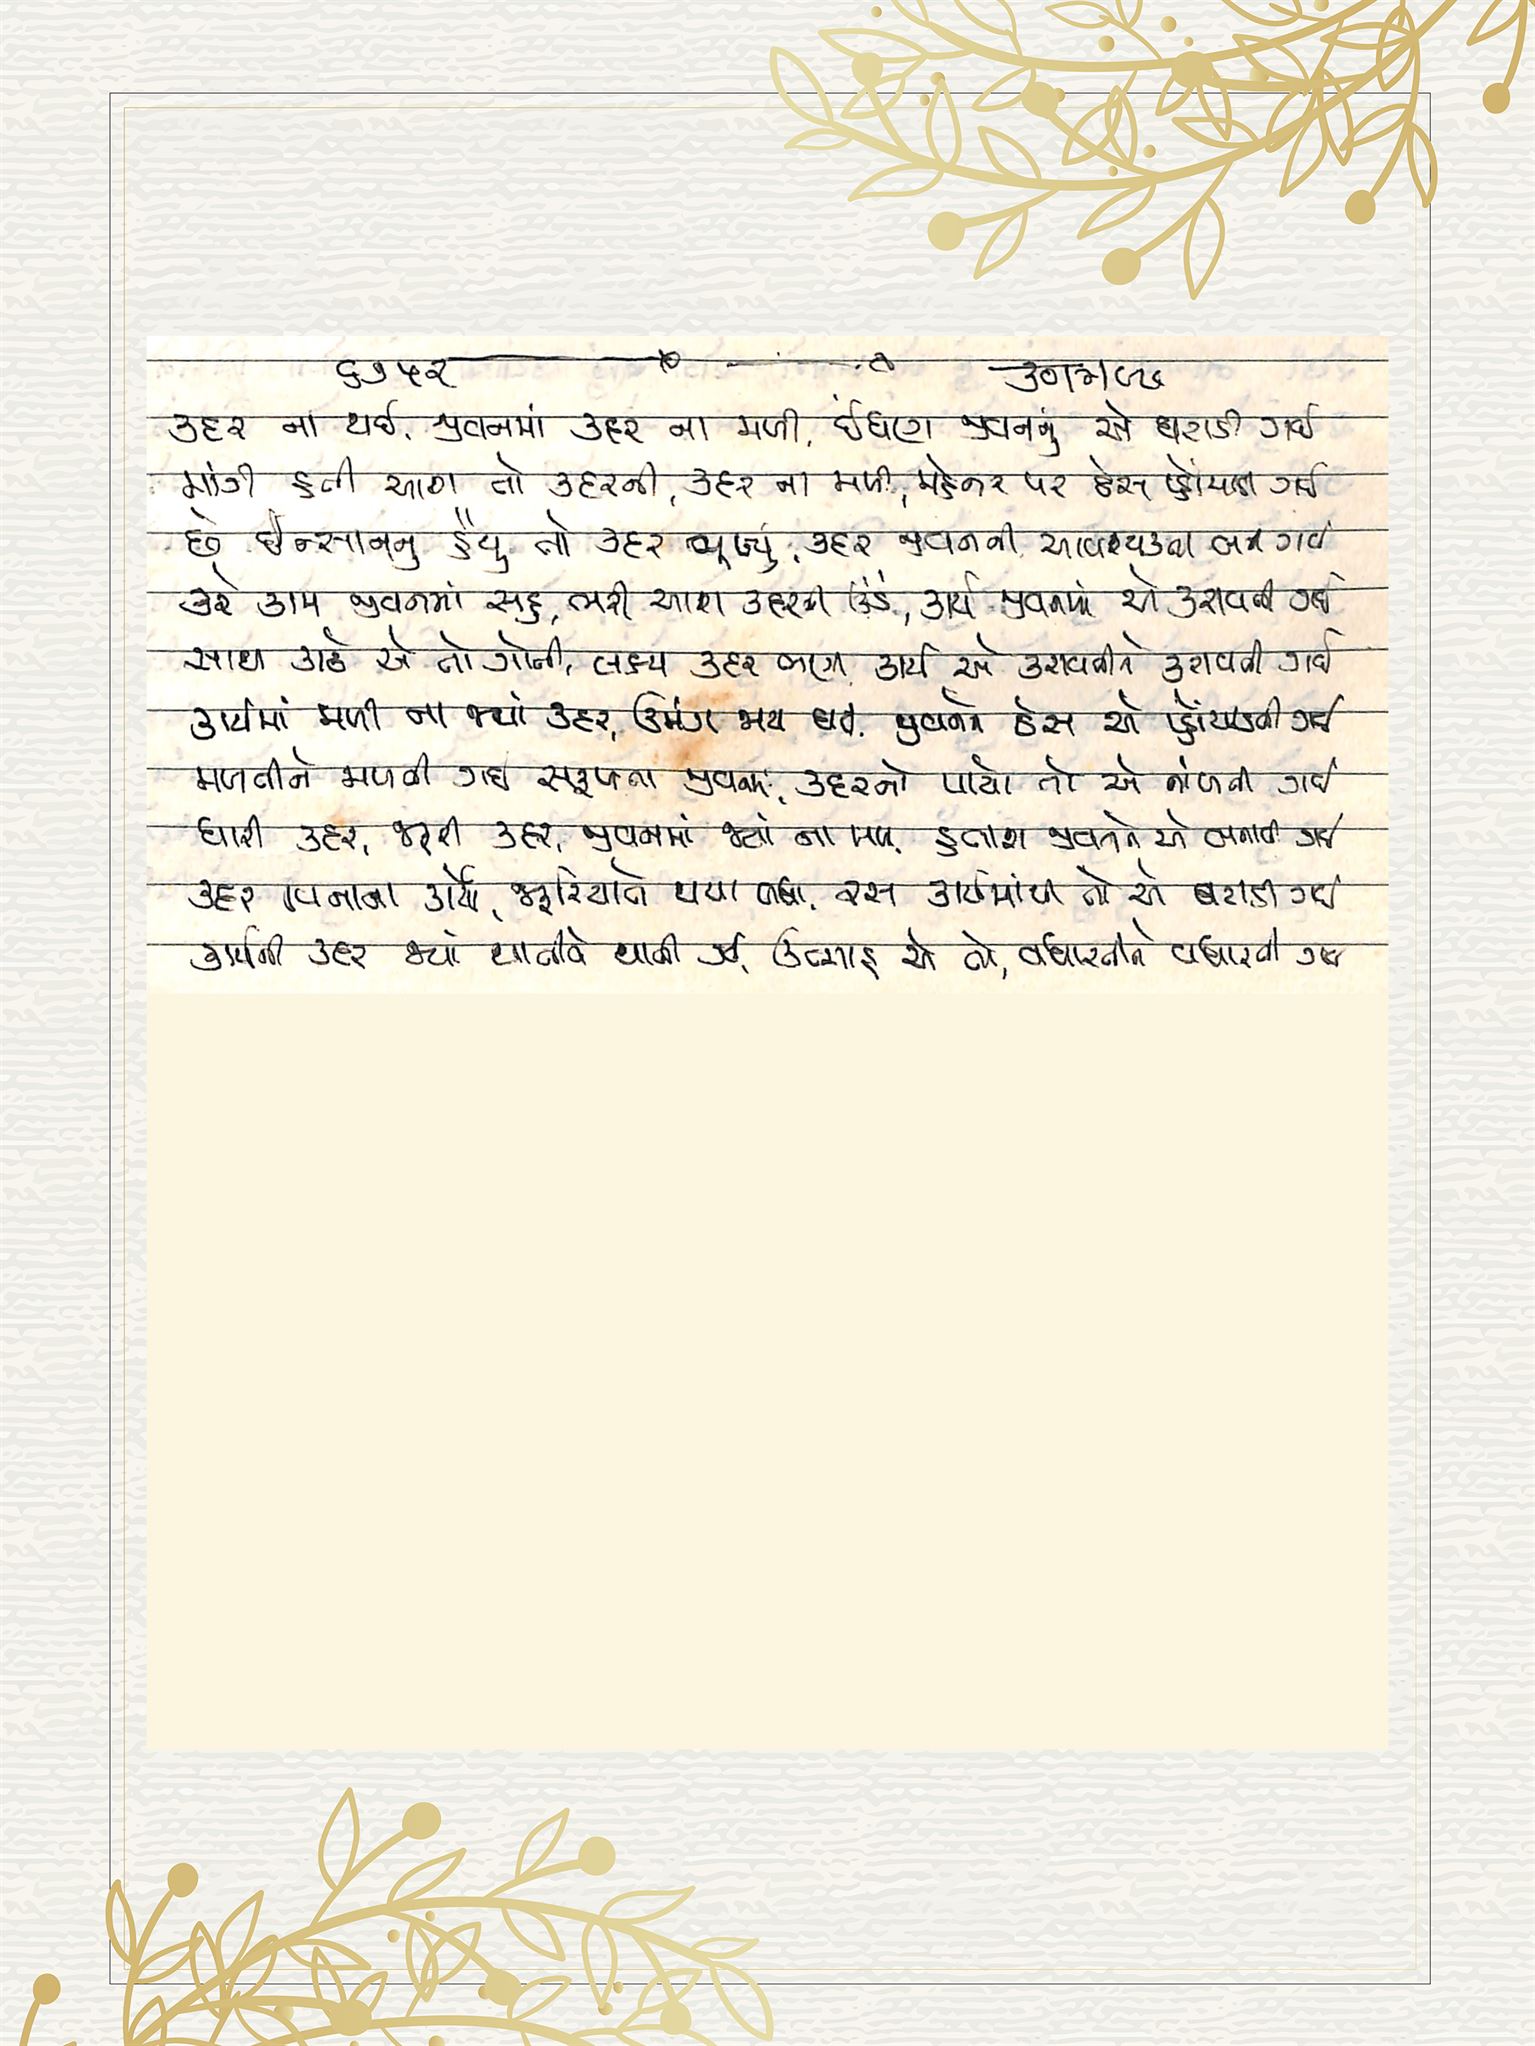 ૬૭૫૨
કદર ના થઈ, જીવનમાં કદર ના મળી, ઈંધણ જીવનનું એ ઘટાડી ગઈ
માંગી હતી આશ તો કદરની, કદર ના મળી, મહેનત પર ઠેસ પ્હોંચાડી ગઈ
છે ઈન્સાનનું હૈયું તો કદર ભૂખ્યું, કદર જીવનની આવશ્યકતા બની ગઈ
કરે કામ જીવનમાં સહુ, ભરી આશ કદરની ઉંડે, કાર્ય જીવનમાં એ કરાવતી ગઈ
સાથ કાજે એ તો ગોતી, લક્ષ્ય કદર બાણ, કાર્ય એ કરાવતીને કરાવતી ગઈ
કાર્યમાં મળી ના જ્યાં કદર, ઉમંગ ભર્યા જીવનને ઠેસ એ પ્હોંચાડતી ગઈ
મળતીને મળતી ગઈ સફળતા જીવનમાં, કદરનો પાયો તો એ નાંખતી ગઈ
ધારી કદર, જરૂરી કદર, જીવનમાં જ્યાં ના મળી, હતાશ જીવનને એ બનાવી ગઈ
કદર વિનાના કાર્યો, જરૂરિયાતે થયા બધા, રસ કાર્યમાંથી તો એ ઘટાડી ગઈ
કાર્યની કદર જ્યાં થાતીને થાતી ગઈ, ઉત્સાહ એ તો, વધારતીને વધારતી ગઈ